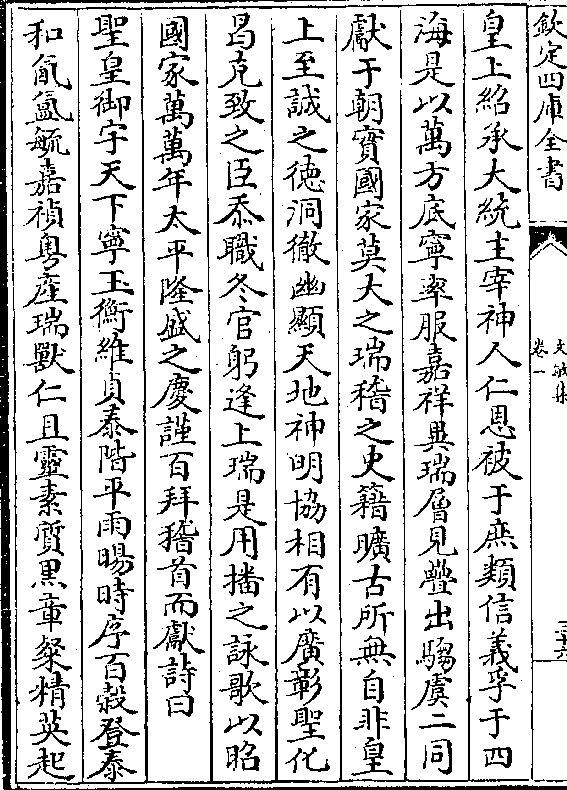 欽定四庫全書
文敏集
卷一
三十六
皇上紹承大統主宰神人仁恩被于庶類信義孚于四
海是以萬方底寧率服嘉祥異瑞層見疊出騶虞二同
獻于朝實國家莫大之瑞稽之史籍曠古所無自非皇
上至誠之德洞徹幽顯天地神明協相有以廣彰聖化
曷克致之臣忝職冬官躬逢上瑞是用播之詠歌以昭
國家萬萬年太平隆盛之慶謹百拜稽首而獻詩曰
聖皇御宇天下寧玉衡維貞泰階平雨暘時序百穀登泰
和氤氳毓嘉禎粤產瑞獸仁且靈素質黒章粲精英起